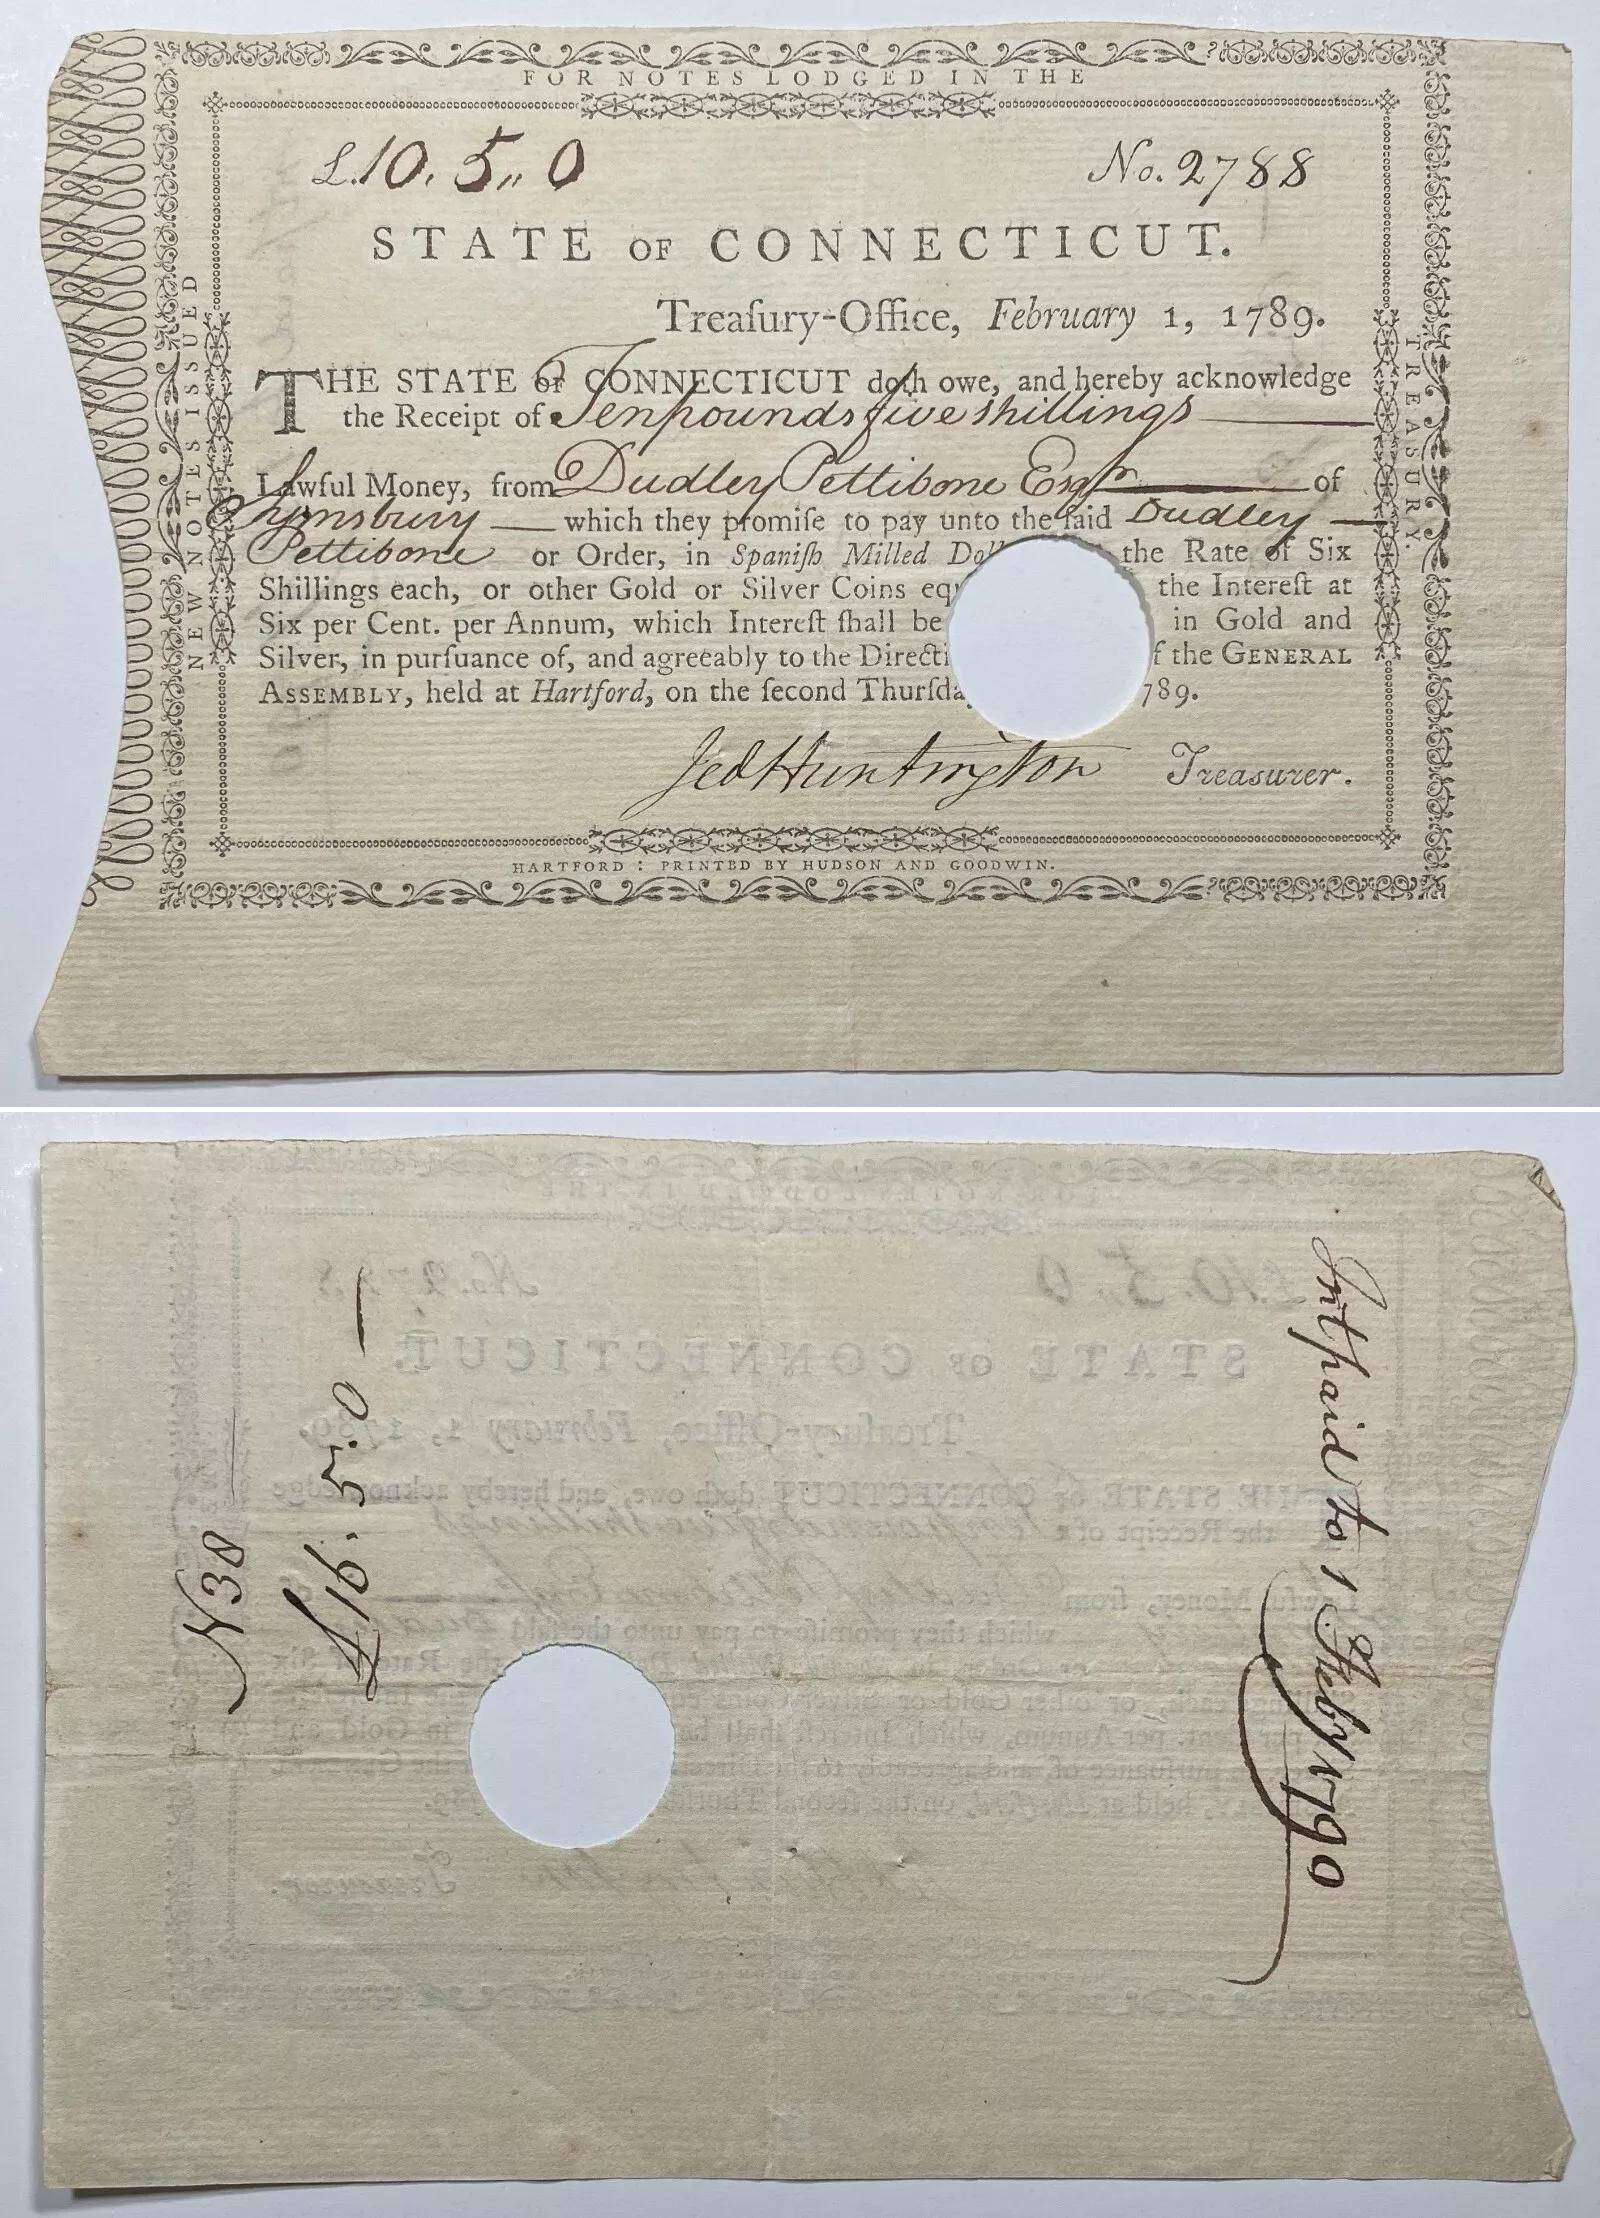 FOR NOTES LODGED IN THE
£.10. 5,, 0 No. 2788
STATE OF CONNECTICUT.
Treaſury-Office, February 1, 1789.
THE STATE OF CONNECTICUT doth owe, and hereby acknowledge
the Receipt of Ten pounds five shillings
Lawful Money, from Dudley Pettibone Esqr of
Symsbury which they promiſe to pay unto the ſaid Dudley
Pettibone or Order, in Spaniſh Milled the Rate of Six
Shillings each, or other Gold or Silver Coins the Intereſt at
Six per Cent. per Annum, which Intereſt ſhall be in Gold and
Silver, in purſuance of, and agreeably to the the GENERAL
ASSEMBLY, held at Hartford, on the ſecond 789.
Jed Huntington Treasurer.
HARTFORD : PRINTED BY HUDSON AND GOODWIN.
NEW NOTES ISSUED
TREASURY.
N 30
£10. 5. 0
Int paid to 1 Feby 1790